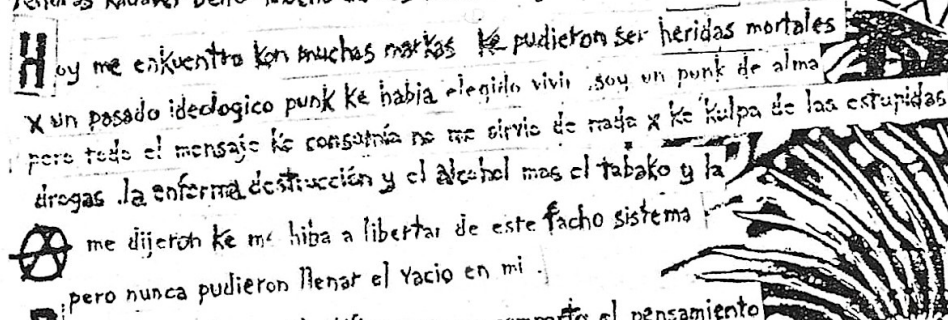 Hoy me enkuentro kon muchas markas ke pudieron ser heridas mortales
x un pasado ideologico punk ke habia elegido vivir .soy un punk de alma
pero todo el mensaje ke consumia no me sirvio de nada x ke kulpa de las estupidas
drogas .la enferma destrucción y el alcohol mas el tabako y la
A me dijeron ke me hiba a libertar de este facho sistema
pero nunca pudieron llenar el vacio en mi .
el pensamiento